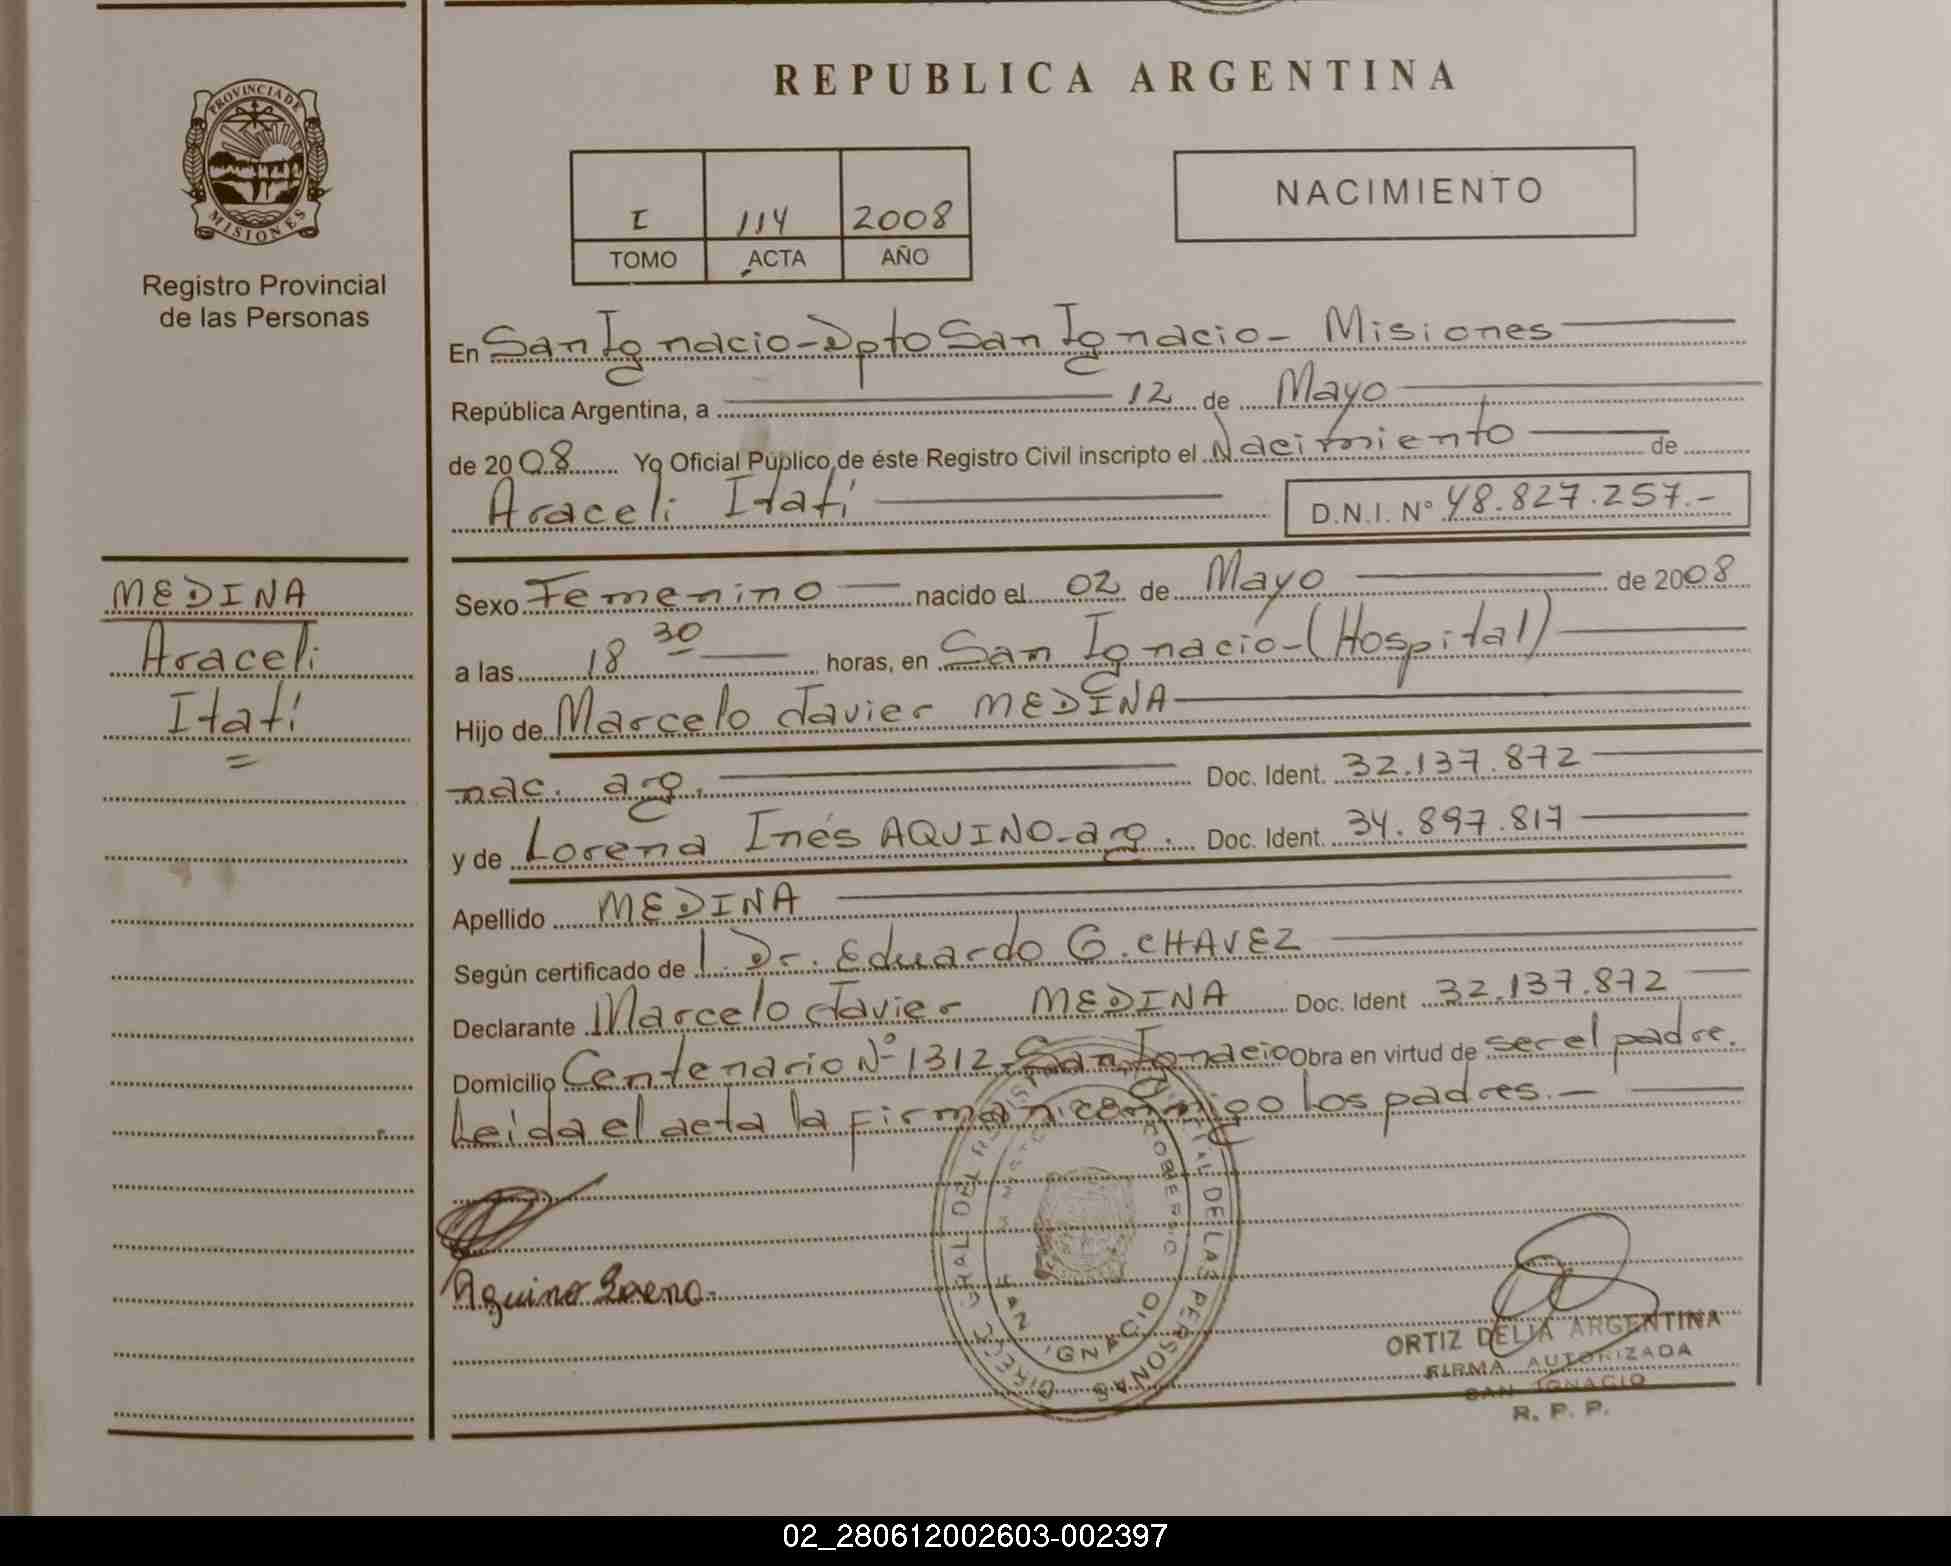 REPUBLICA ARGENTINA
PROVINCIA DE
MISIONES
Registro Provincial
de las Personas
I 114 2008
TOMO ACTA AÑO
NACIMIENTO
En San Ignacio - Dpto San Ignacio - Misiones
República Argentina, a 12 de Mayo
de 2008 Yo Oficial Público de éste Registro Civil inscripto el Nacimiento de
Araceli Itatí D.N.I. N° 48.827.257.-
MEDINA
Araceli
Itatí
Sexo Femenino nacido el 02 de Mayo de 2008
a las 18 30 horas, en San Ignacio - (Hospital)
Hijo de Marcelo Javier MEDINA
nac. arg. Doc. Ident. 32.137.872
y de Lorena Inés AQUINO - arg. Doc. Ident. 34.897.817
Apellido MEDINA
Según certificado de l. Dr. Eduardo G. CHAVEZ
Declarante Marcelo Javier MEDINA Doc. Ident 32.137.872
Domicilio Centenario N° 1312 - San Ignacio Obra en virtud de ser el padre.
Leída el acta la firman conmigo los padres. -
Aquino Lorena.
DEL DE LAS PERSONAS
SAN IGNACIO
ORTIZ DELIA ARGENTINA
FIRMA AUTORIZADA
SAN IGNACIO
R. P. P.
02_280612002603-002397